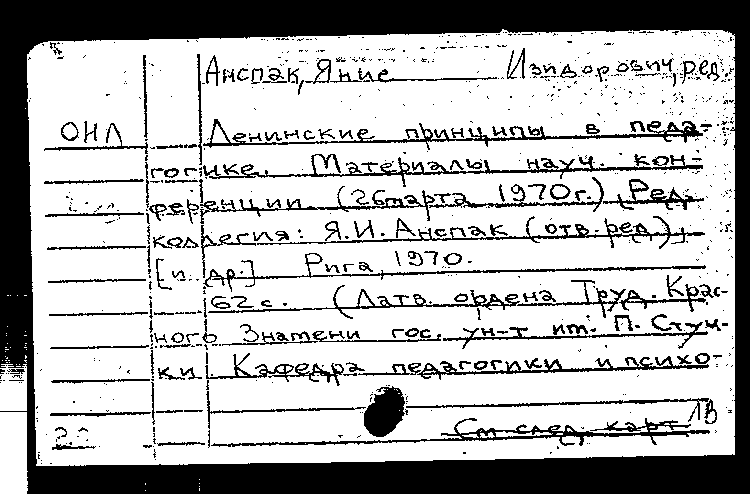 Анспак, Яние Изидорович, ред.
ОНЛ Ленинские принципы в педа-
гогике. Материалы науч. кон-
ференции. (26 марта 1970г.) Ред.
коллегия: Я.И. Анспак (отв. ред.)
[и др.] Рига, 1970.
62 с. (Латв. ордена Труд. Крас-
ного Знамени гос. ун-т им. П. Стуч-
ки. Кафедра педагогики и психо-
См след. карт 1В